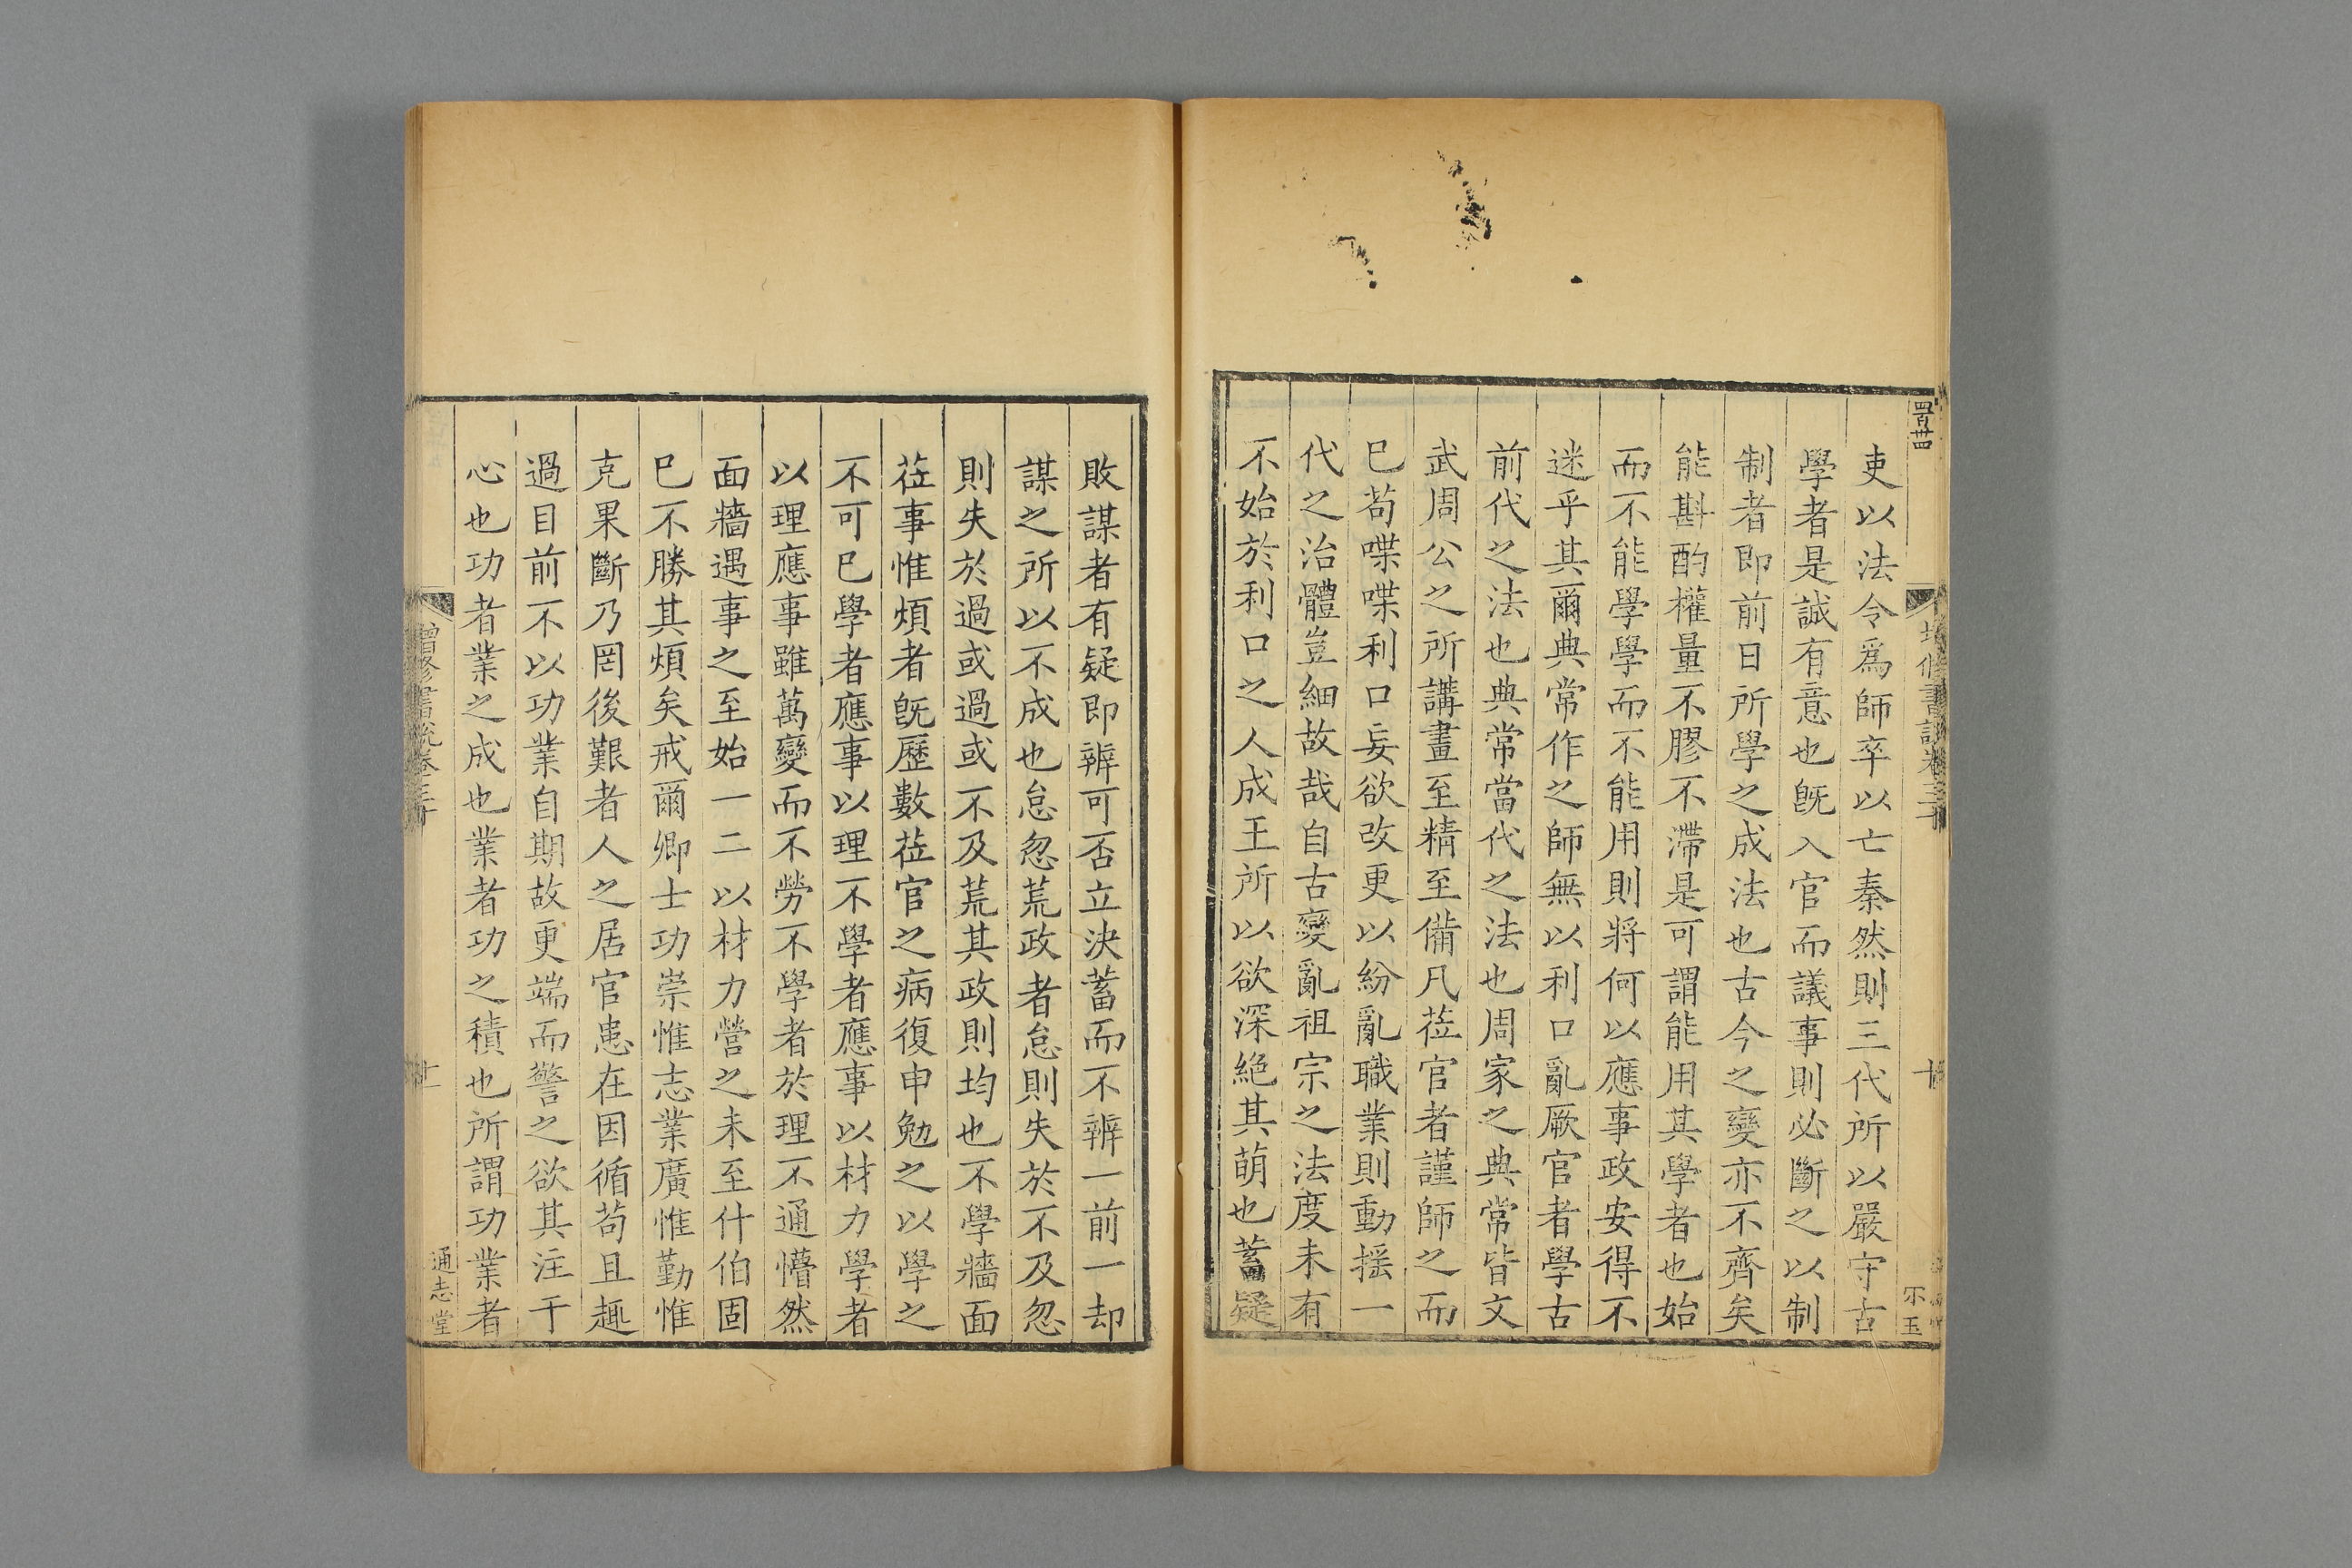 吏以法令爲師卒以亡秦然則三代所以嚴守古
學者是誠有意也旣入官而議事則必斷之以制
制者即前日所學之成法也古今之變亦不齊矣
能斟酌權量不膠不滯是可謂能用其學者也始
而不能學學而不能用則將何以應事政安得不
迷乎其爾典常作之師無以利口亂厥官者學古
前代之法也典常當代之法也周家之典常皆文
武周公之所講畫至精至備凡莅官者謹師之而
巳苟喋喋利口妄欲改更以紛亂職業則動搖一
代之治體豈細故哉自古變亂祖宗之法度未有
不始於利口之人成王所以欲深絕其萌也蓄疑
敗謀者有疑即辨可否立決蓄而不辨一前一却
謀之所以不成也怠忽荒政者怠則失於不及忽
則失於過或過或不及荒其政則均也不學牆面
莅事惟煩者旣歷數莅官之病復申勉之以學之
不可巳學者應事以理不學者應事以材力學者
以理應事雖萬變而不勞不學者於理不通懵然
面牆遇事之至始一二以材力營之未至什伯固
巳不勝其煩矣戒爾卿士功崇惟志業廣惟勤惟
克果斷乃罔後艱者人之居官患在因循苟且趣
過目前不以功業自期故更端而警之欲其注于
心也功者業之成也業者功之積也所謂功業者
增修書說卷三十
十一
通志堂